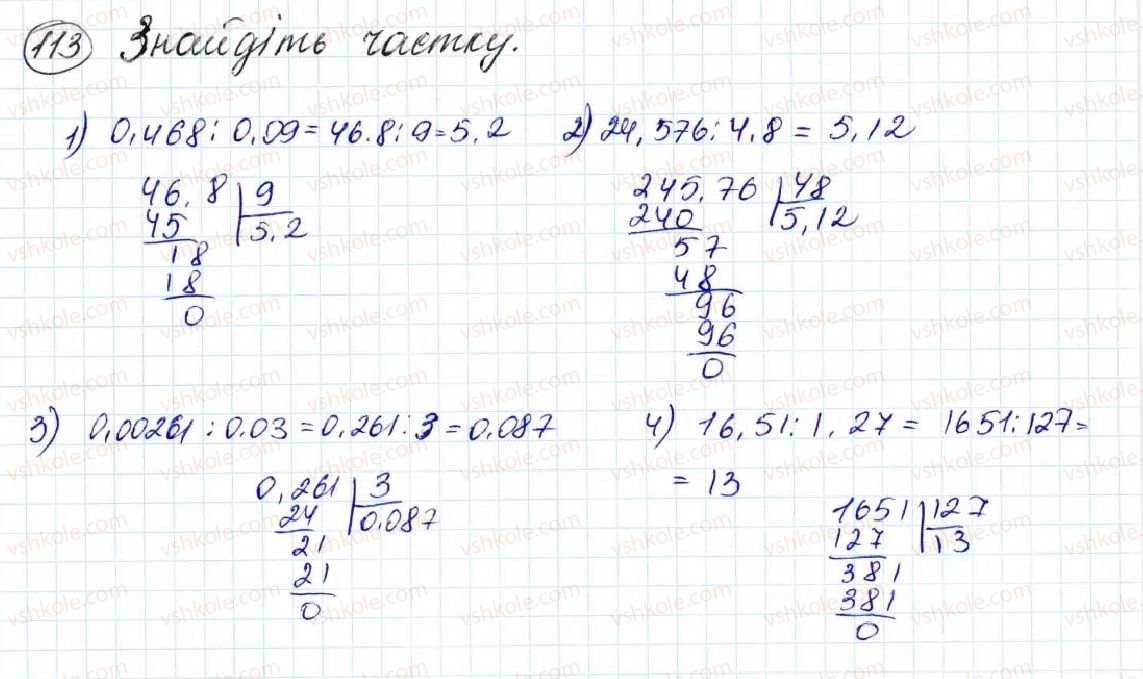 113 Знайдіть частку.
1) 0,468 : 0,09 = 46.8 : 9 = 5,2
46,8 9
45 5,2
18
18
0
2) 24,576 : 4,8 = 5,12
245,76 48
240 5,12
57
48
96
96
0
3) 0,00261 : 0.03 = 0,261 : 3 = 0,087
0,261 3
24 0,087
21
21
0
4) 16,51 : 1,27 = 1651 : 127 =
= 13
1651 127
127 13
381
381
0